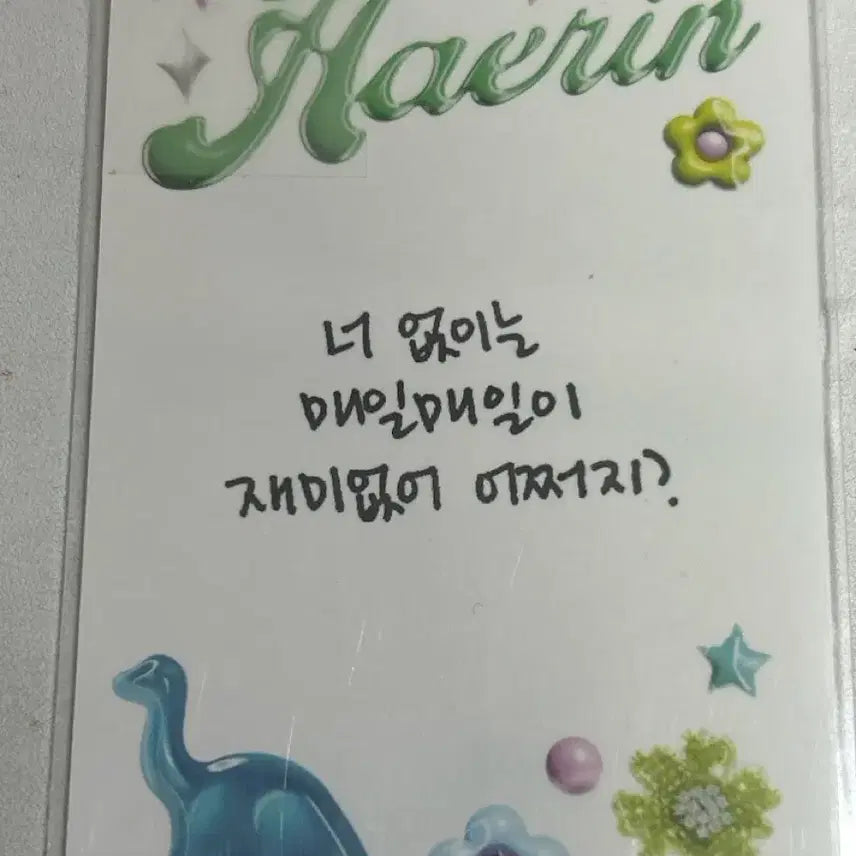 Haerin
너 없이는
매일매일이
재미없어 어쩌지?